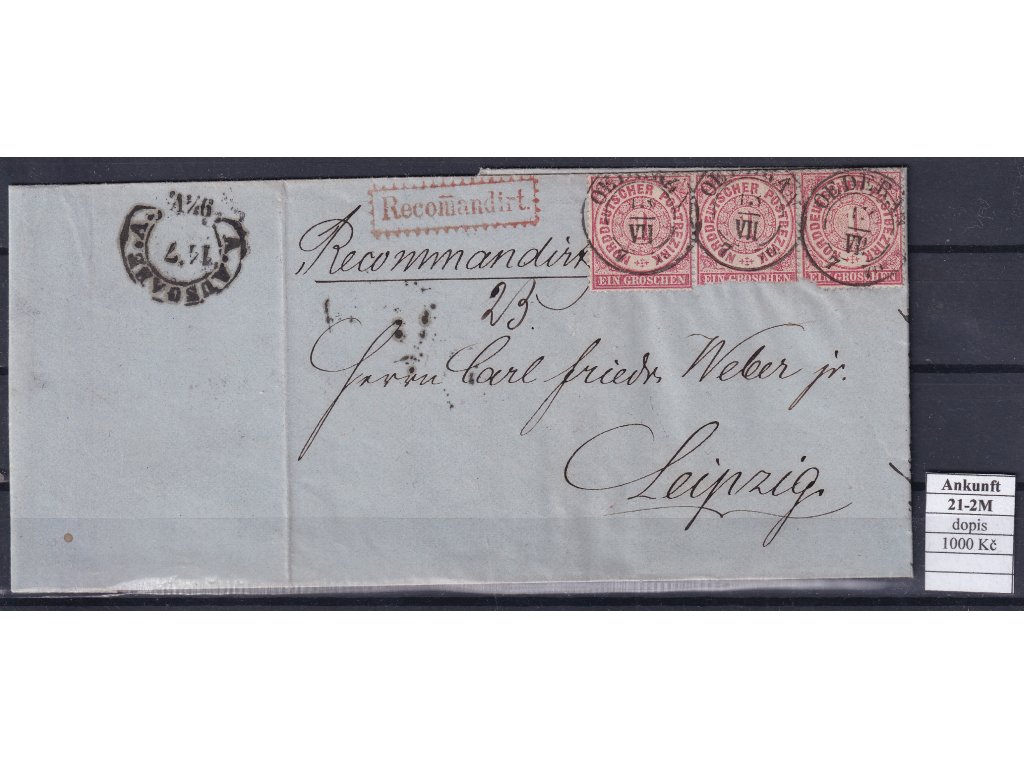 Recomandirt.
Recommandirt
23.
NORDDEUTSCHER POSTBEZIRK
EIN GROSCHEN
NORDDEUTSCHER POSTBEZIRK
EIN GROSCHEN
NORDDEUTSCHER POSTBEZIRK
EIN GROSCHEN
OEDERAN
VII
OEDERAN
VII
OEDERAN
VII
AUSGABE
Herrn Carl Friedr. Weber jr.
Leipzig.
Ankunft
21-2M
dopis
1000 Kč